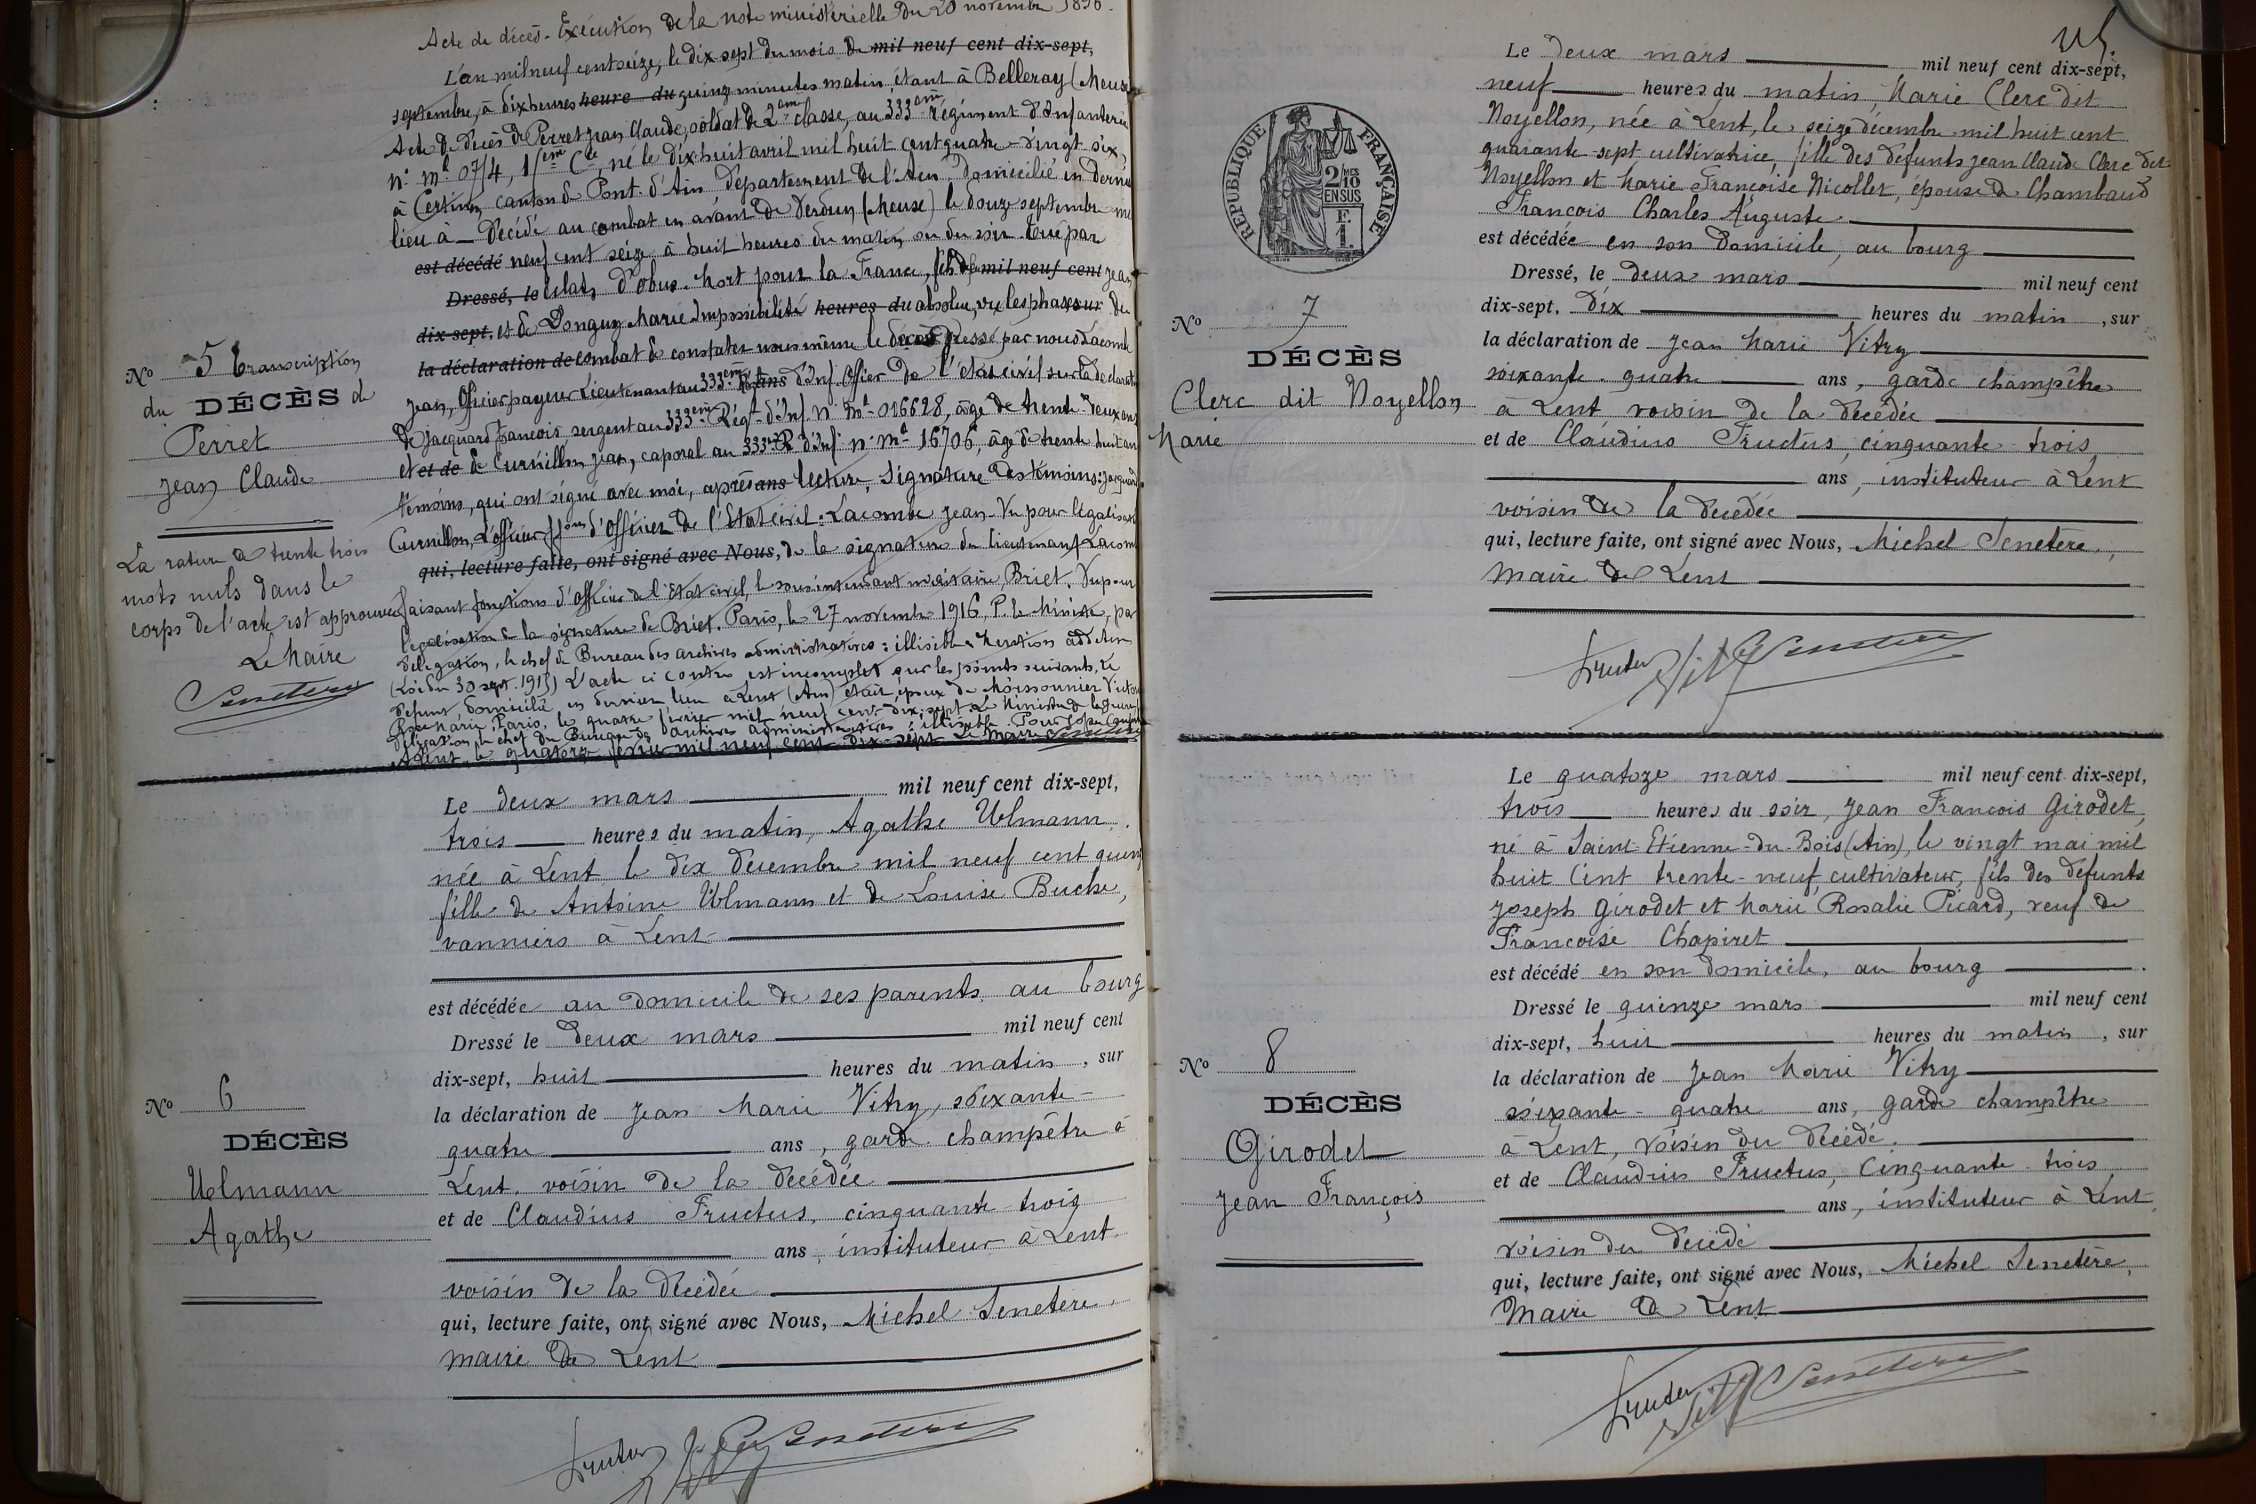 Acte de décès. Exécution de la note ministérielle du 20 novembre 1896.
L'an mil neuf cent seize, le dix sept du mois de mil neuf cent dix-sept,
septembre, à dix heures heure du quinze minutes matin, étant à Belleray (Meuse
Acte de décès de Perret Jean Claude, soldat de 2eme classe, au 333eme régiment d'Infanterie
né le dix huit avril mil huit cent quatre-vingt-six,
à Certines canton de Pont d'Ain département de l'Ain domicilié en dernier
lieu à — Décédé au combat en avant de Verdun (Meuse) le douze septembre mil
est décédé neuf cent seize, à huit heures du matin ou du soir. Tué par
Dressé, le éclats d'obus. Mort pour la France, fils de mil neuf cent Jean
dix-sept. et de Donguy Marie Impossibilité heures du absolue, vu les phases sur du
la déclaration de combat de constater nous même le décès Dressé par nous Lacombe
Jean, Officier payeur Lieutenant au 333eme ans d'Inf. Officier de l'état civil sur la déclaration
de Jacquard François, sergent au 333eme Régt d'Inf. n° Ml 016628, âgé de trente deux ans
et et de de Curnillon Jean, caporal au 333eme R. d'Inf. n° Ml 16706, âgé de trente huit ans
témoins, qui ont signé avec moi, après ans lecture, Signature des témoins: Jacquard
Curnillon, L'officier d'officier de l'Etat Civil: Lacombe Jean - Vu pour légalisation
qui, lecture faite, ont signé avec Nous, de la signature du lieutenant Lacombe
faisant fonctions d'officier de l'Etat civil, le sous intendant militaire, Briet. Vu pour
légalisation de la signature de Briet. Paris, le 27 novembre 1916, P. le Ministre, par
délégation, le chef de Bureau des archives administratives: illisible. Mention additive
(Loi du 30 sept. 1915) L'acte ci contre est incomplet sur les points suivants, le
défunt domicilié en dernier lieu à Lent (Ain) était époux de Moissonnier Victorine
Marie, Paris, le quatre février mil neuf cent dix-sept. Le Ministre de la guerre
délégation le chef du Bureau des archives administratives, illisible. Pour copie conforme
A Lent le quatorze février mil neuf cent dix-sept Le Maire Senetère
N° 5 transcription
du DÉCÈS de
Perret
Jean Claude
La rature de trente trois
mots nuls dans le
corps de l'acte est approuvée
Le Maire
Senetère
Le deux mars mil neuf cent dix-sept,
trois heures du matin, Agathe Uhlmann,
née à Lent le dix décembre mil neuf cent quinze
fille de Antoine Uhlmann et de Louise Buche,
vanniers à Lent
est décédée au domicile de ses parents au bourg
Dressé le deux mars mil neuf cent
dix-sept, huit heures du matin, sur
la déclaration de Jean Marie Vitry, soixante-
quatre ans, garde champêtre à
Lent, voisin de la décédée
et de Claudius Fructus, cinquante-trois
ans, instituteur à Lent
voisin de la décédée
qui, lecture faite, ont signé avec Nous, Michel Senetère,
maire de Lent
N° 6
DÉCÈS
Uhlmann
Agathe
Fructus Vitry Senetère
Le deux mars mil neuf cent dix-sept,
neuf heures du matin, Marie Clerc dit
Noyellon, née à Lent, le seize décembre mil huit cent
quarante-sept cultivatrice, fille des défunts Jean Claude Clerc dit
Noyellon et Marie Françoise Nicollet, épouse de Chambaud
François Charles Auguste
est décédée en son domicile, au bourg
Dressé, le deux mars mil neuf cent
dix-sept, dix heures du matin, sur
la déclaration de Jean Marie Vitry
soixante-quatre ans, garde champêtre
à Lent voisin de la décédée
et de Claudius Fructus, cinquante-trois
ans, instituteur à Lent
voisin de la décédée
qui, lecture faite, ont signé avec Nous, Michel Senetère,
Maire de Lent
RÉPUBLIQUE FRANÇAISE
2 MES
10
EN SUS
F.
1.
N° 7
DÉCÈS
Clerc dit Noyellon
Marie
Fructus Vitry Senetère
Le quatoze mars mil neuf cent dix-sept,
trois heures du soir, Jean François Girodet,
né à Saint-Etienne-du-Bois (Ain), le vingt mai mil
huit cent trente-neuf, cultivateur, fils des défunts
Joseph Girodet et Marie Rosalie Picard, veuf de
Françoise Chapiret
est décédé en son domicile, au bourg
Dressé le quinze mars mil neuf cent
dix-sept, huit heures du matin, sur
la déclaration de Jean Marie Vitry
soixante-quatre ans, garde champêtre
à Lent, voisin du décédé.
et de Claudius Fructus, cinquante-trois
ans, instituteur à Lent,
voisin du décédé
qui, lecture faite, ont signé avec Nous, Michel Senetère,
Maire de Lent
N° 8
DÉCÈS
Girodet
Jean François
Fructus Vitry Senetère